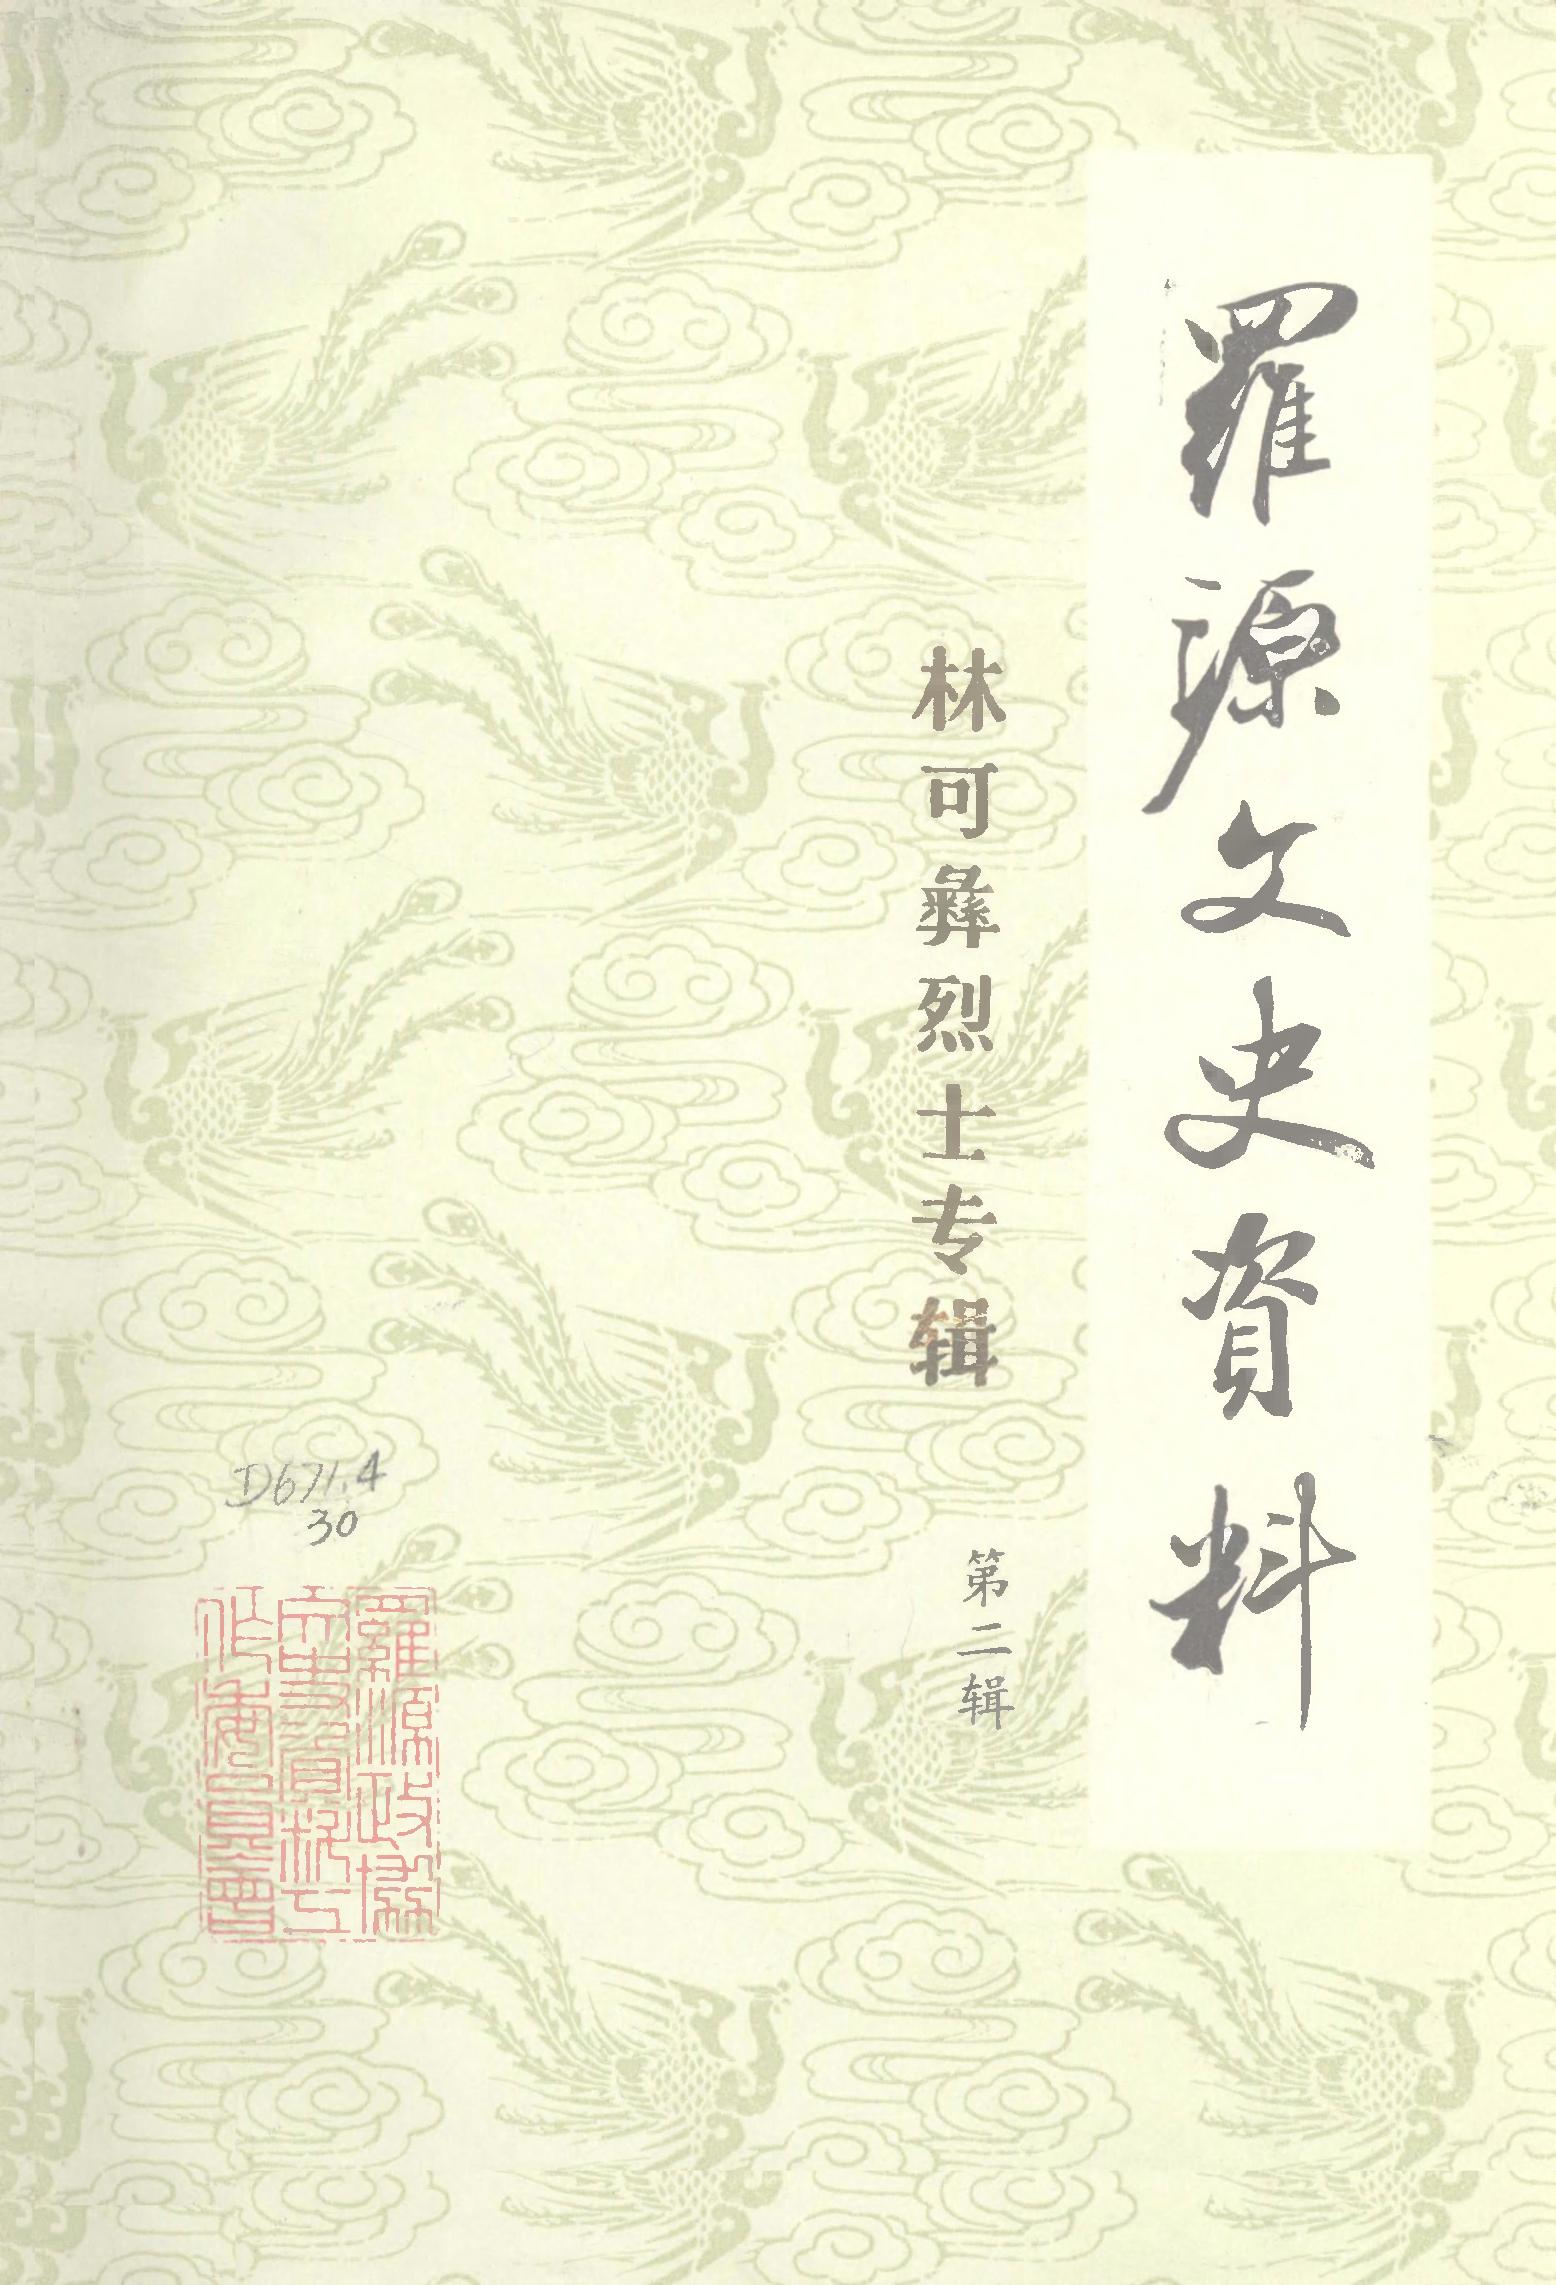 羅源文史資料
林可彝烈士专辑
第二辑
D671.4
30
羅源政協
文史資料工
作委員會